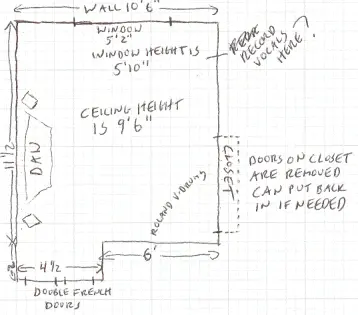 WALL 10'6"
WINDOW
5'2"
WINDOW HEIGHT IS
5'10"
RECORD
VOCALS
HERE?
CEILING HEIGHT
IS 9'6"
11 1/2
DAW
CLOSET
DOORS ON CLOSET
ARE REMOVED
CAN PUT BACK
IN IF NEEDED
ROLAND V-DRUMS
2
4 1/2
6'
DOUBLE FRENCH
DOORS